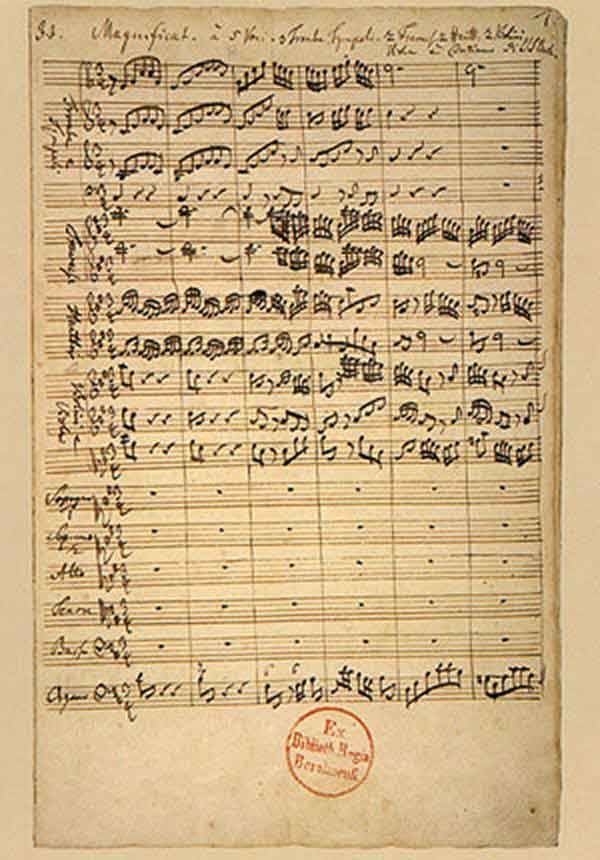 J.J. Magnificat. à 5 Voci. 3 Trombe Tympali. 2 Travers. 2 Hautb. 2 Violini
Viola è Continuo di J. S. Bach
Hautb.
Violini
Viola
Soprano
Soprano
Alto
Tenore
Basso
Ex
Biblioth. Regia
Berolinensi.